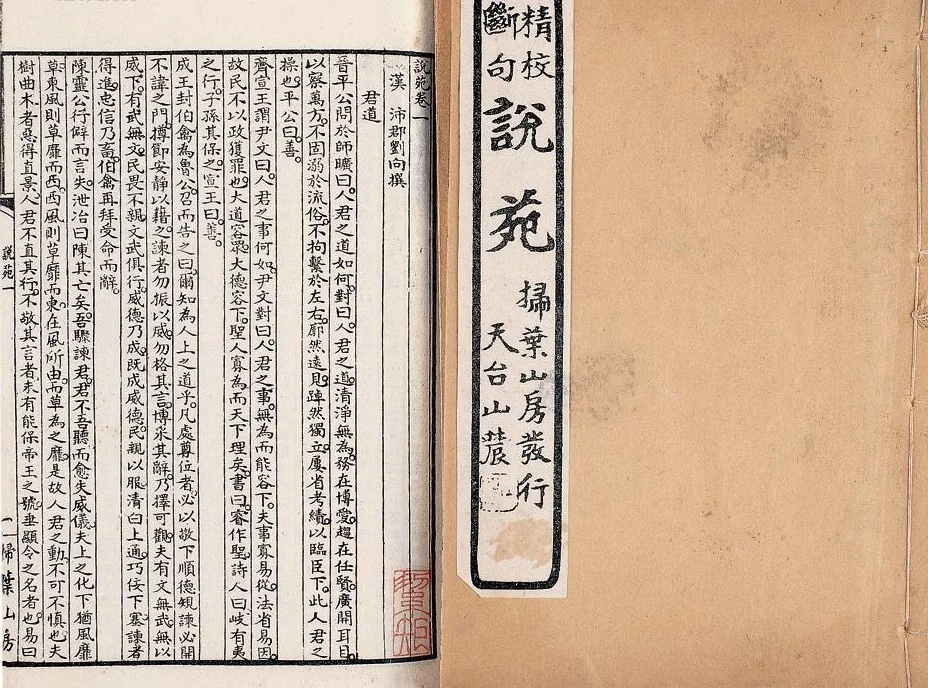 精校
斷句
說苑
掃葉山房發行
天台山農
說苑卷一
漢 沛郡劉向撰
君道
晉平公問於師曠曰。人君之道如何。對曰。人君之道。清淨無為。務在博愛。趨在任賢。廣開耳目。
以察萬方。不固溺於流俗。不拘繫於左右。廓然遠見。踔然獨立。屢省考績。以臨臣下。此人君之
操也。平公曰。善。
齊宣王謂尹文曰。人君之事何如。尹文對曰。人君之事。無為而能容下。夫事寡易從。法省易因。
故民不以政獲罪也。大道容眾。大德容下。聖人寡為而天下理矣。書曰。睿作聖。詩人曰。岐有夷
之行。子孫其保之。宣王曰。善。
成王封伯禽為魯公。召而告之曰。爾知為人上之道乎。凡處尊位者。必以敬下順德規諫。必開
不諱之門。撙節安靜以藉之。諫者勿振以威。勿格其言。博采其辭。乃擇可觀。夫有文無武。無以
威下。有武無文。民畏不親。文武俱行。威德乃成。既成威德。民親以服。清白上通。巧佞下塞。諫者
得進。忠信乃畜。伯禽再拜受命而辭。
陳靈公行僻而言失。泄冶曰。陳其亡矣。吾驟諫君。君不吾聽。而愈失威儀。夫上之化下。猶風靡
草。東風則草靡而西。西風則草靡而東。在風所由。而草為之靡。是故人君之動。不可不慎也。夫
樹曲木者。惡得直景。人君不直其行。不敬其言者。未有能保帝王之號。垂顯令之名者也。易曰
說苑一
一 掃葉山房